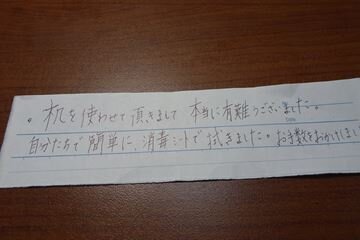 。机を使わせて頂きまして 本当に有難うございました。
自分たちで簡単に、消毒シートで拭きました。お手数をおかけしまい